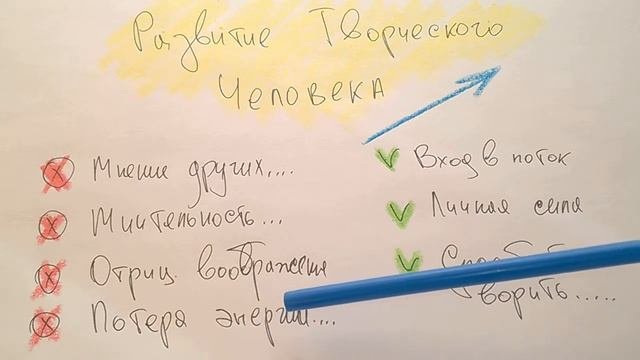 Развитие Творческого
Человека
Мнение других....
Мнительность...
Отриц. воображение
Потеря энергии....
Вход в поток
Личная сила
творить.....